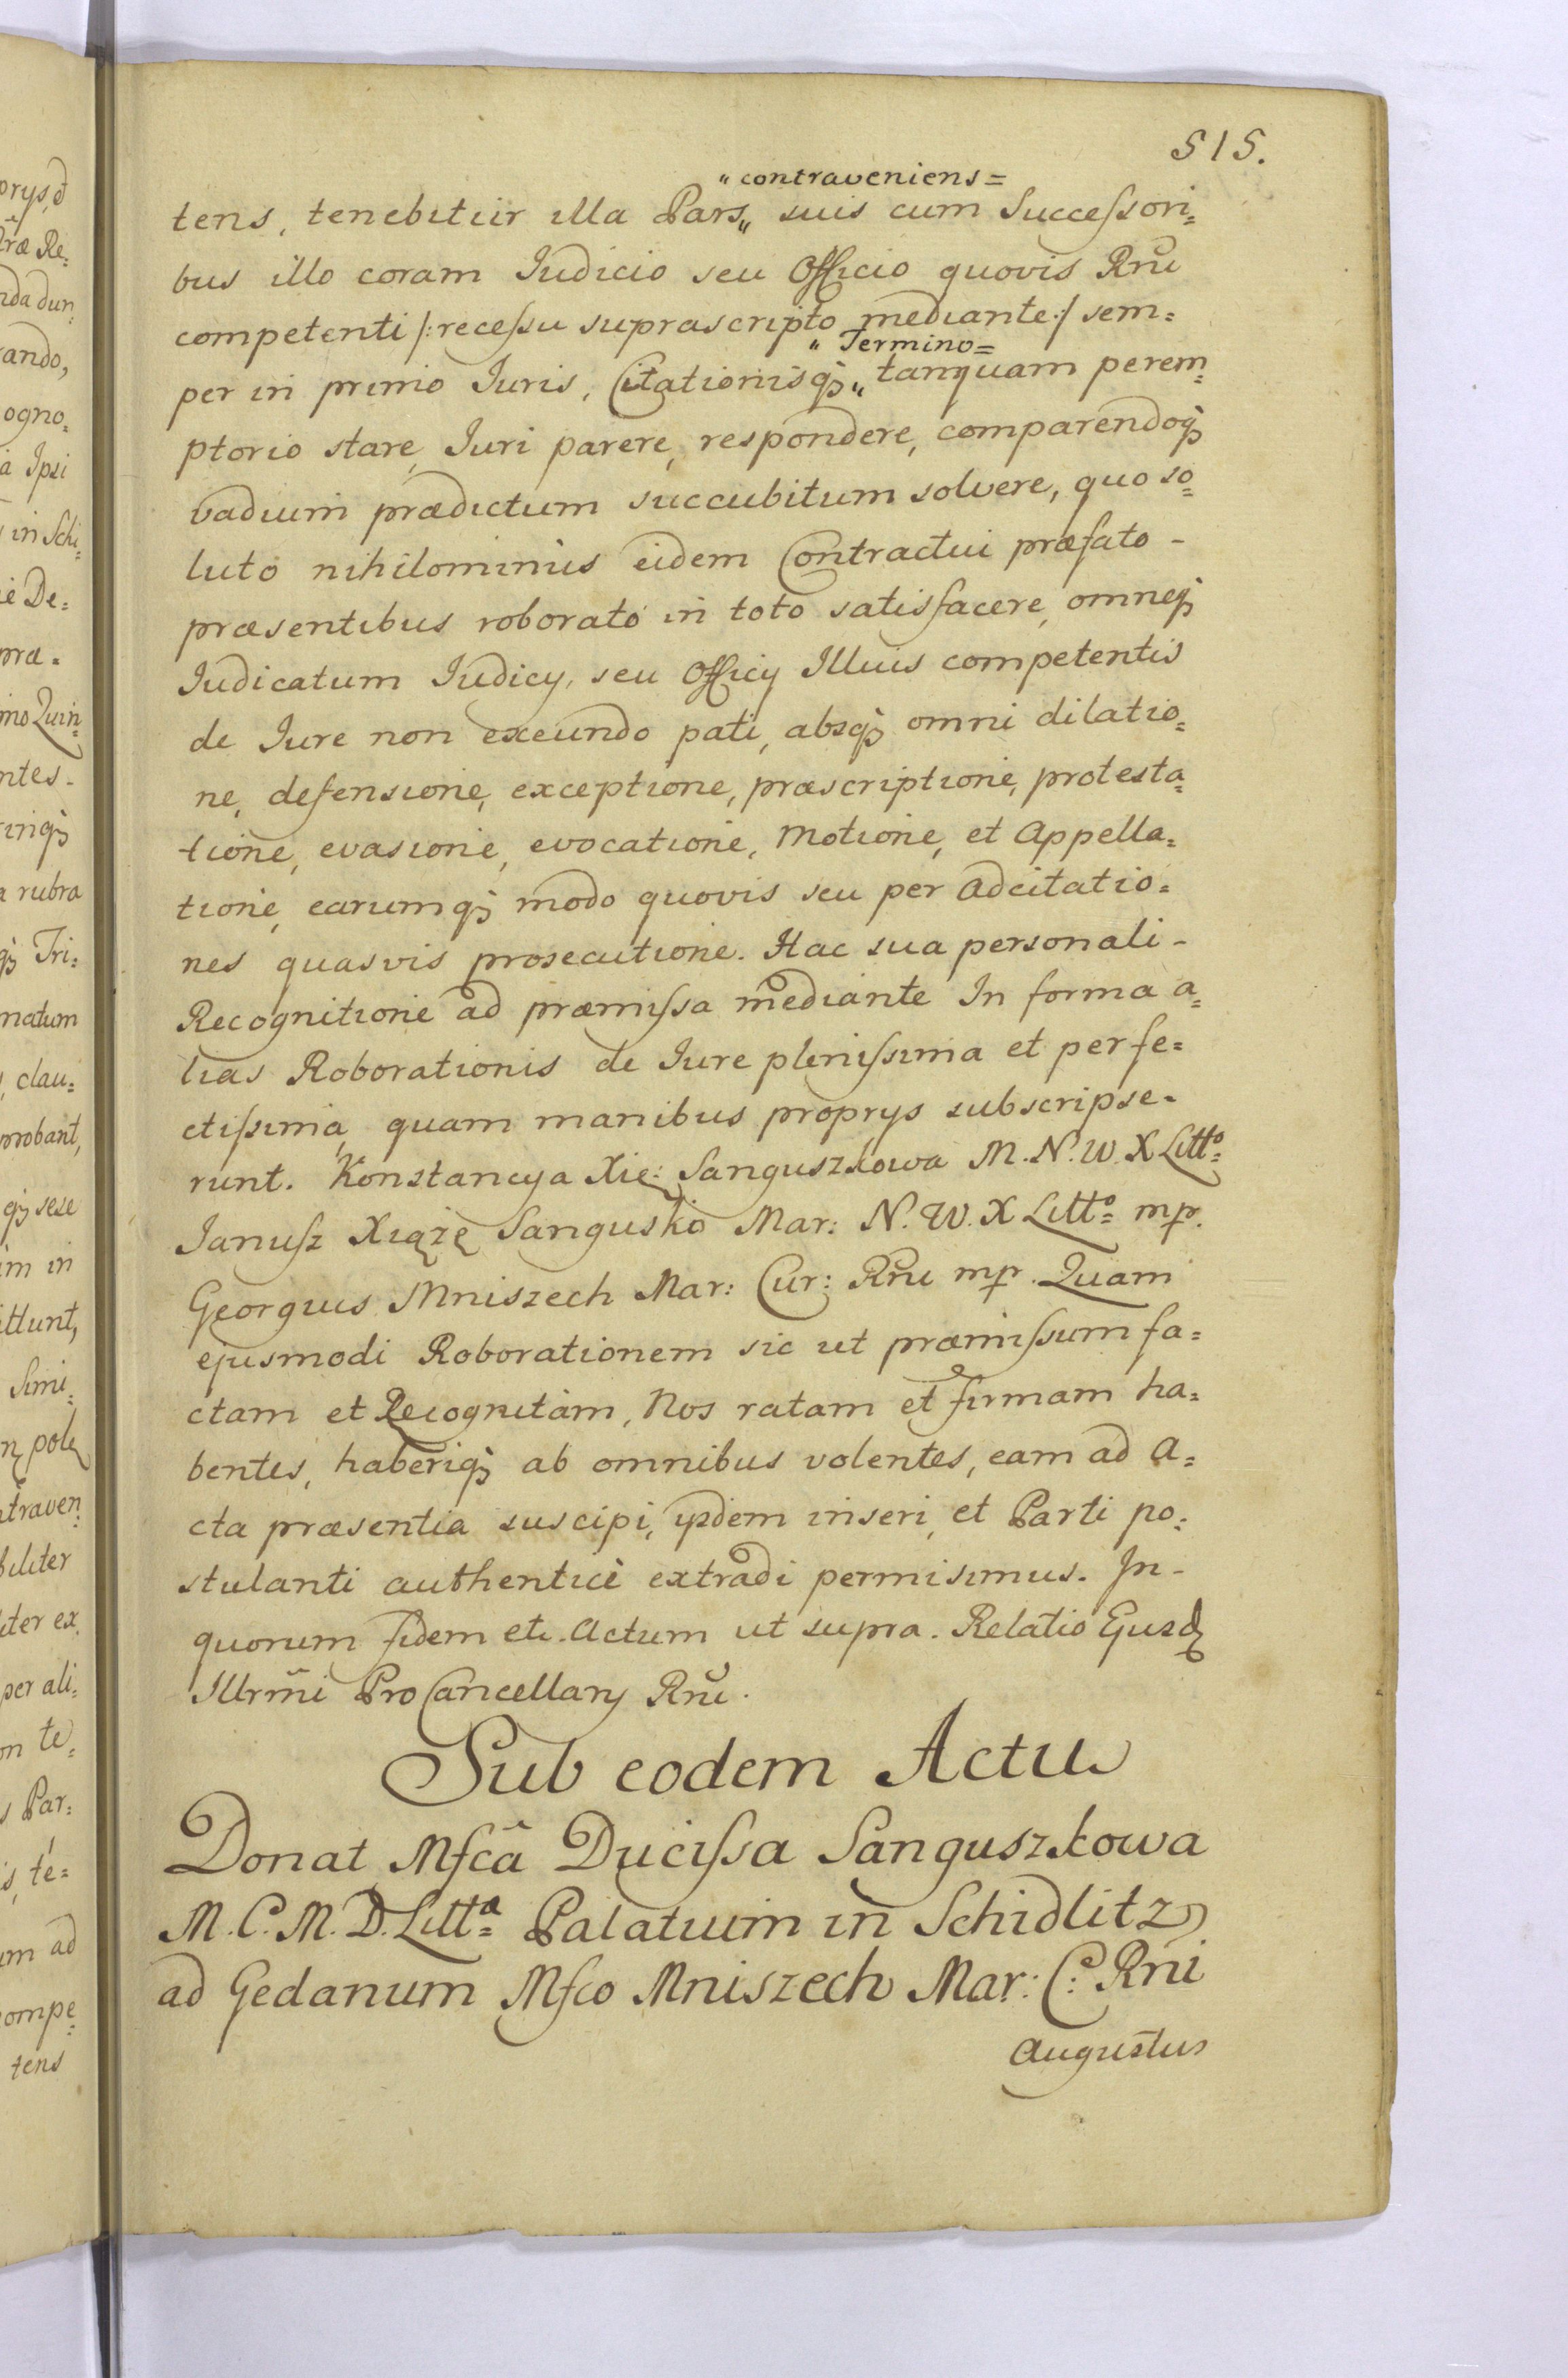 515.
"contraveniens=
tens, tenebitur illa Pars,, suis cum Successori=
bus illo coram Iudicio seu Officio quovis Rñi
competenti /: recessu suprascripto mediante :/ sem=
"Termino=
per in primo Iuris, Citationisq₃,, tanquam perem=
ptorio stare, Iuri parere, respondere, comparendoq₃
vadium prædictum succubitum solvere, quo so=
luto nihilominus eidem Contractui præfato -
præsentibus roborato in toto satisfacere, omneq₃
Iudicatum Iudicy, seu Officy Illius competentis
de Iure non exeundo pati, absq₃ omni dilatio=
ne, defensione, exceptione, præscriptione, protesta=
tione, evasione, evocatione, Motione, et Appella=
tione, earumq₃ modo quovis seu per Adcitatio=
nes quasvis prosecutione. Hac sua personali -
Recognitione ad præmissa mediante In forma a=
lias Roborationis de Iure plenissima et perfe=
ctissima, quam manibus proprys subscripse=
runt. Konstancya Xię: Sanguszkowa M. N. W. X Litto=
Janusz Xiąże Sangusko Mar: N. W. X Litto= mp.
Georgius Mniszech Mar: Cur: Rñi mp. Quam
ejusmodi Roborationem sic ut præmissum fa=
ctam et Recognitam, Nos ratam et firmam ha=
bentes, haberiq₃ ab omnibus volentes, eam ad A=
cta præsentia suscipi, ysdem inseri, et Parti po=
stulanti authentice extradi permisimus. In -
quorum fidem etc. Actum ut supra. Relatio Ejusd
Illrm̃i ProCancellary Rñi.
Sub eodem Actu
Donat Mfcã Ducissa Sanguszkowa
M. C. M. D. Litta= Palatium in Schidlitz
ad Gedanum Mfco Mniszech Mar: C: Rñi
Augustus